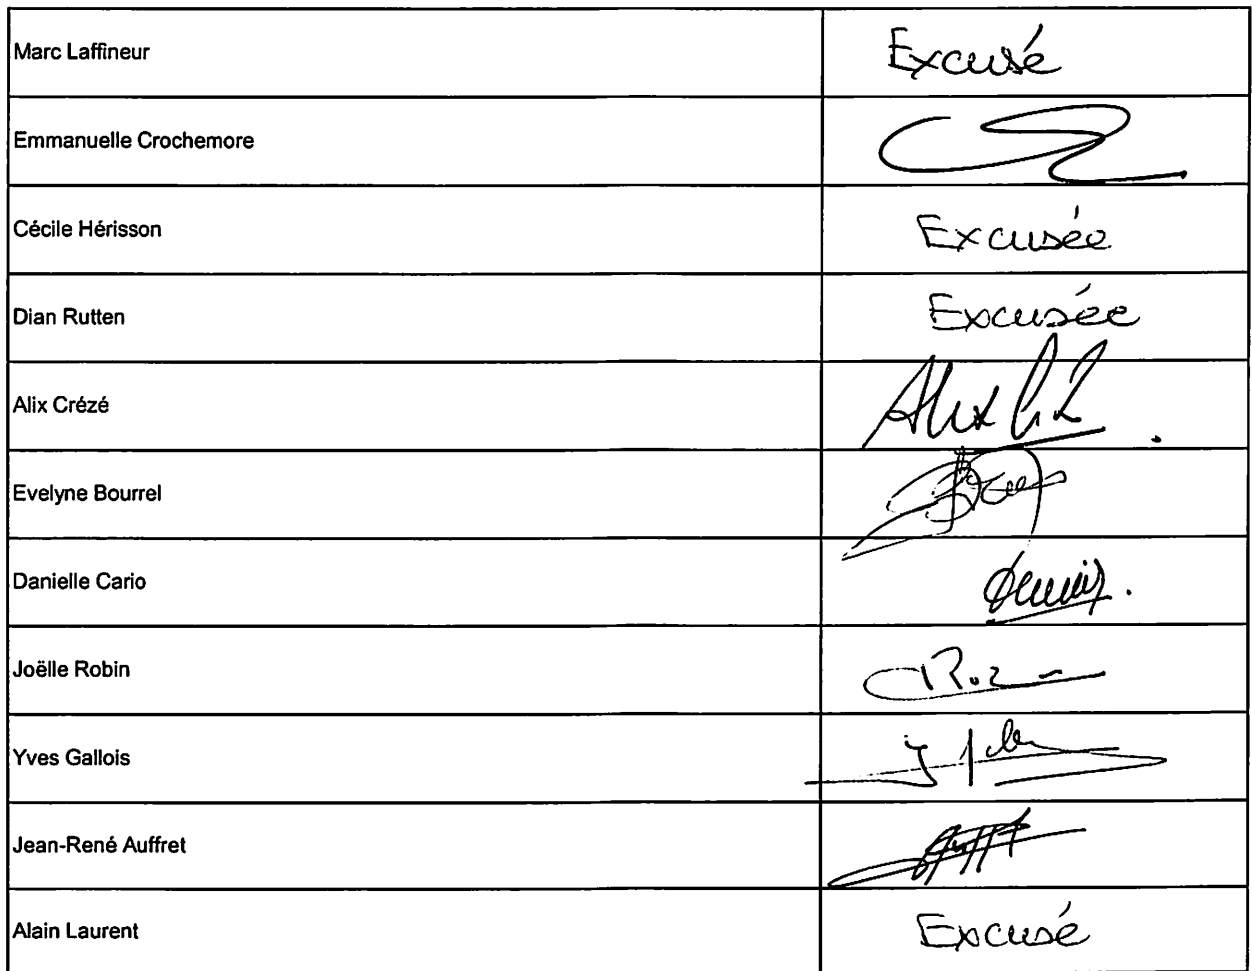 Marc Laffineur Excusé
Emmanuelle Crochemore
Cécile Hérisson Excusée
Dian Rutten Excusée
Alix Crézé Alix
Evelyne Bourrel
Danielle Cario
Joëlle Robin
Yves Gallois
Jean-René Auffret
Alain Laurent Excusé